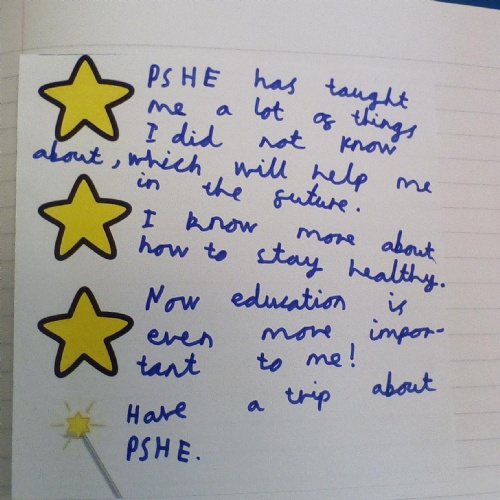 PSHE has taught
me a lot of things
I did not know
about, which will help me
in the future.
I know more about
how to stay healthy.
Now education is
even more impor-
tant to me!
Have a trip about
PSHE.